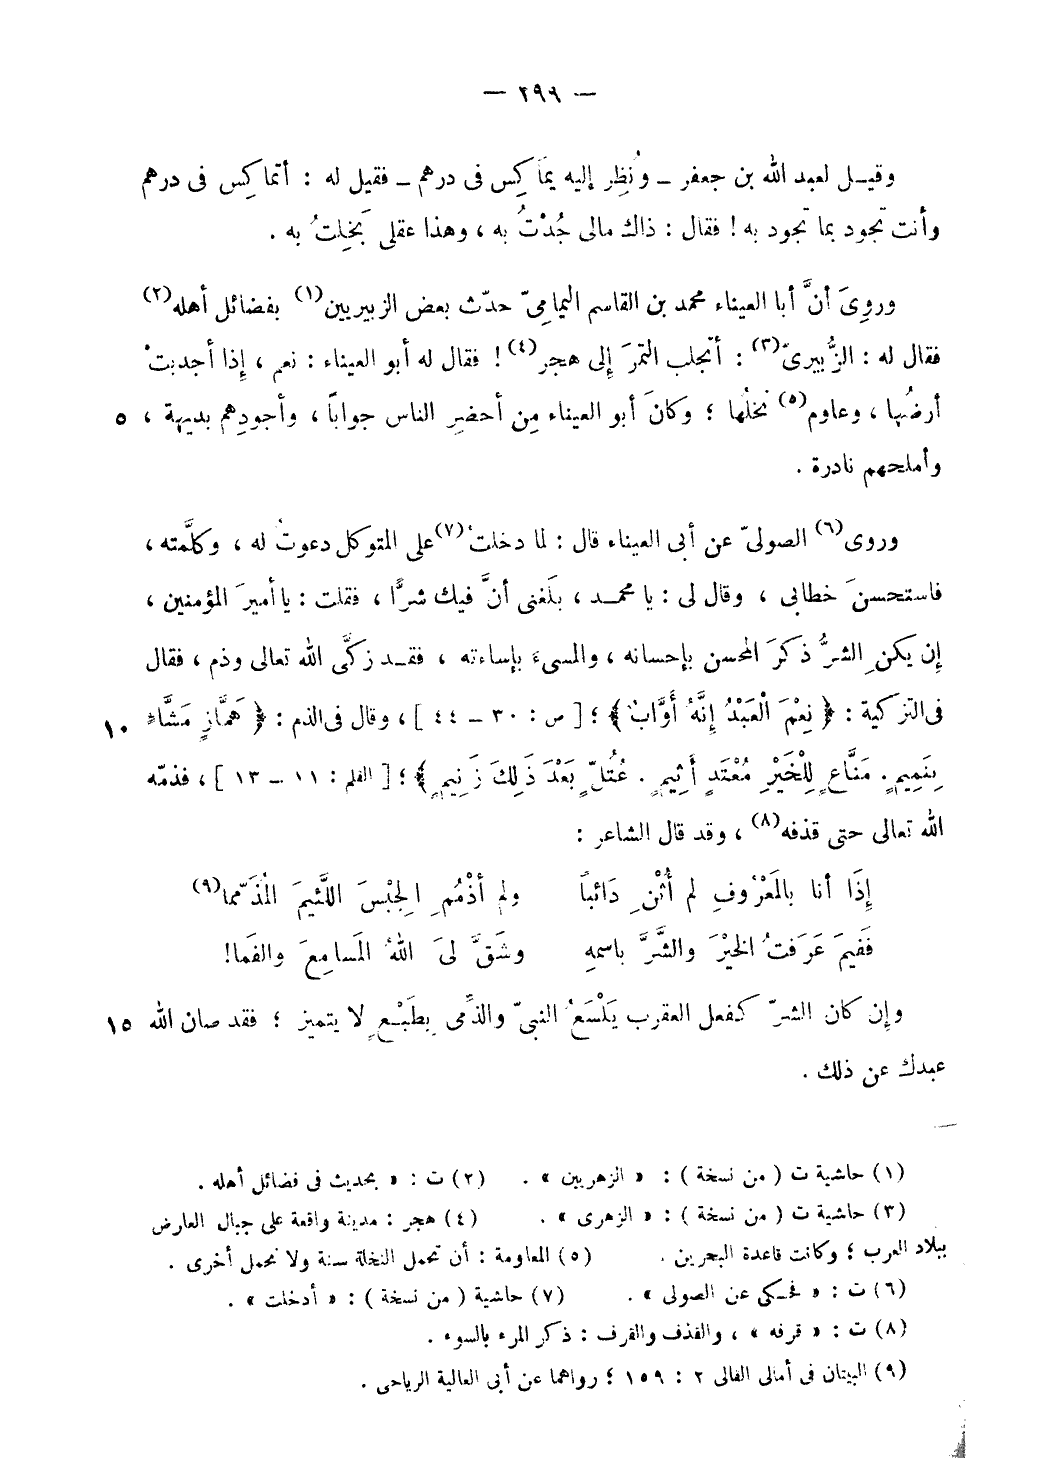 — ٢٩٩ —
وقيـل لعبد الله بن جعفر ـ ونُظِر إليه يمَاكِس فى درهم ـ فقيل له : أتماكِس فى درهم
وأنت تجود بما تجود به ! فقال : ذاك مالى جُدْتُ به ، وهذا عقلى بَخِلتُ به .
وروِىَ أنَّ أبا العيناء محمد بن القاسم اليمامىّ حدّث بعض الزبيريين(١) بفضائل أهله(٢)
فقال له : الزُّبيرىّ(٣) : أتجلب التمرَ إلى هجر(٤) ! فقال له أبو العيناء : نعم ، إذا أجدبتْ
أرضُها ، وعاوم(٥) نخلُها ؛ وكانَ أبو العيناء مِن أحضرِ الناس جواباً ، وأجودِهم بديهة ، ٥
وأملحهم نادرة .
وروى(٦) الصولىّ عن أبى العيناء قال : لما دخلتُ(٧) على المتوكل دعوتُ له ، وكلَّمته ،
فاستحسنَ خطابى ، وقال لى : يا محمـد ، بلَغنى أنَّ فيك شرًّا ، فقلت : يا أميرَ المؤمنين ،
إن يكنِ الشرُّ ذكرَ المحسن بإحسانه ، والمسىءَ بإساءته ، فقـد زكَّى الله تعالى وذم ، فقال
فى التزكية : ﴿ نِعْمَ الْعَبْدُ إِنَّهُ أَوَّابٌ ﴾ ؛ [ ص : ٣٠ – ٤٤ ] ، وقال فى الذم : ﴿ هَمَّازٍ مَشَّاءٍ ١٠
بِنَمِيمٍ . مَنَّاعٍ لِلْخَيْرِ مُعْتَدٍ أَثِيمٍ . عُتُلٍّ بَعْدَ ذَلِكَ زَنِيمٍ ﴾ ؛ [ القلم : ١١ – ١٣ ] ، فذمّه
الله تعالى حتى قذفه(٨) ، وقد قال الشاعر :
إِذَا أنا بالمَعْرُوفِ لم أُثْنِ دَائباً ولم أذْمُمِ الجِبْسَ اللَّئيمَ المُذَمّما(٩)
فَفيمَ عَرَفتُ الخيْرَ والشَّرَّ باسمهِ وشَقَّ لىَ اللهُ المَسامِعَ والفَما!
وإن كان الشرّ كفعل العقرب يَلْسَعُ النبىّ والذمّى بِطَبْعٍ لا يتميز ؛ فقد صان الله ١٥
عبدك عن ذلك .
(١) حاشية ت ( من نسخة ) : « الزهريين » . (٢) ت : « بحديث فى فضائل أهله .
(٣) حاشية ت ( من نسخة ) : « الزهرى » . (٤) هجر : مدينة واقعة على جبال العارض
ببلاد العرب ؛ وكانت قاعدة البحرين . (٥) المعاومة : أن تحمل النخلة سنة ولا تحمل أخرى .
(٦) ت : « فحكى عن الصولى » . (٧) حاشية ( من نسخة ) : « أدخلت » .
(٨) ت : « قرفه » ، والقذف والقرف : ذكر المرء بالسوء .
(٩) البيتان فى أمالى القالى ٢ : ١٥٩ ؛ رواهما عن أبى العالية الرياحى .